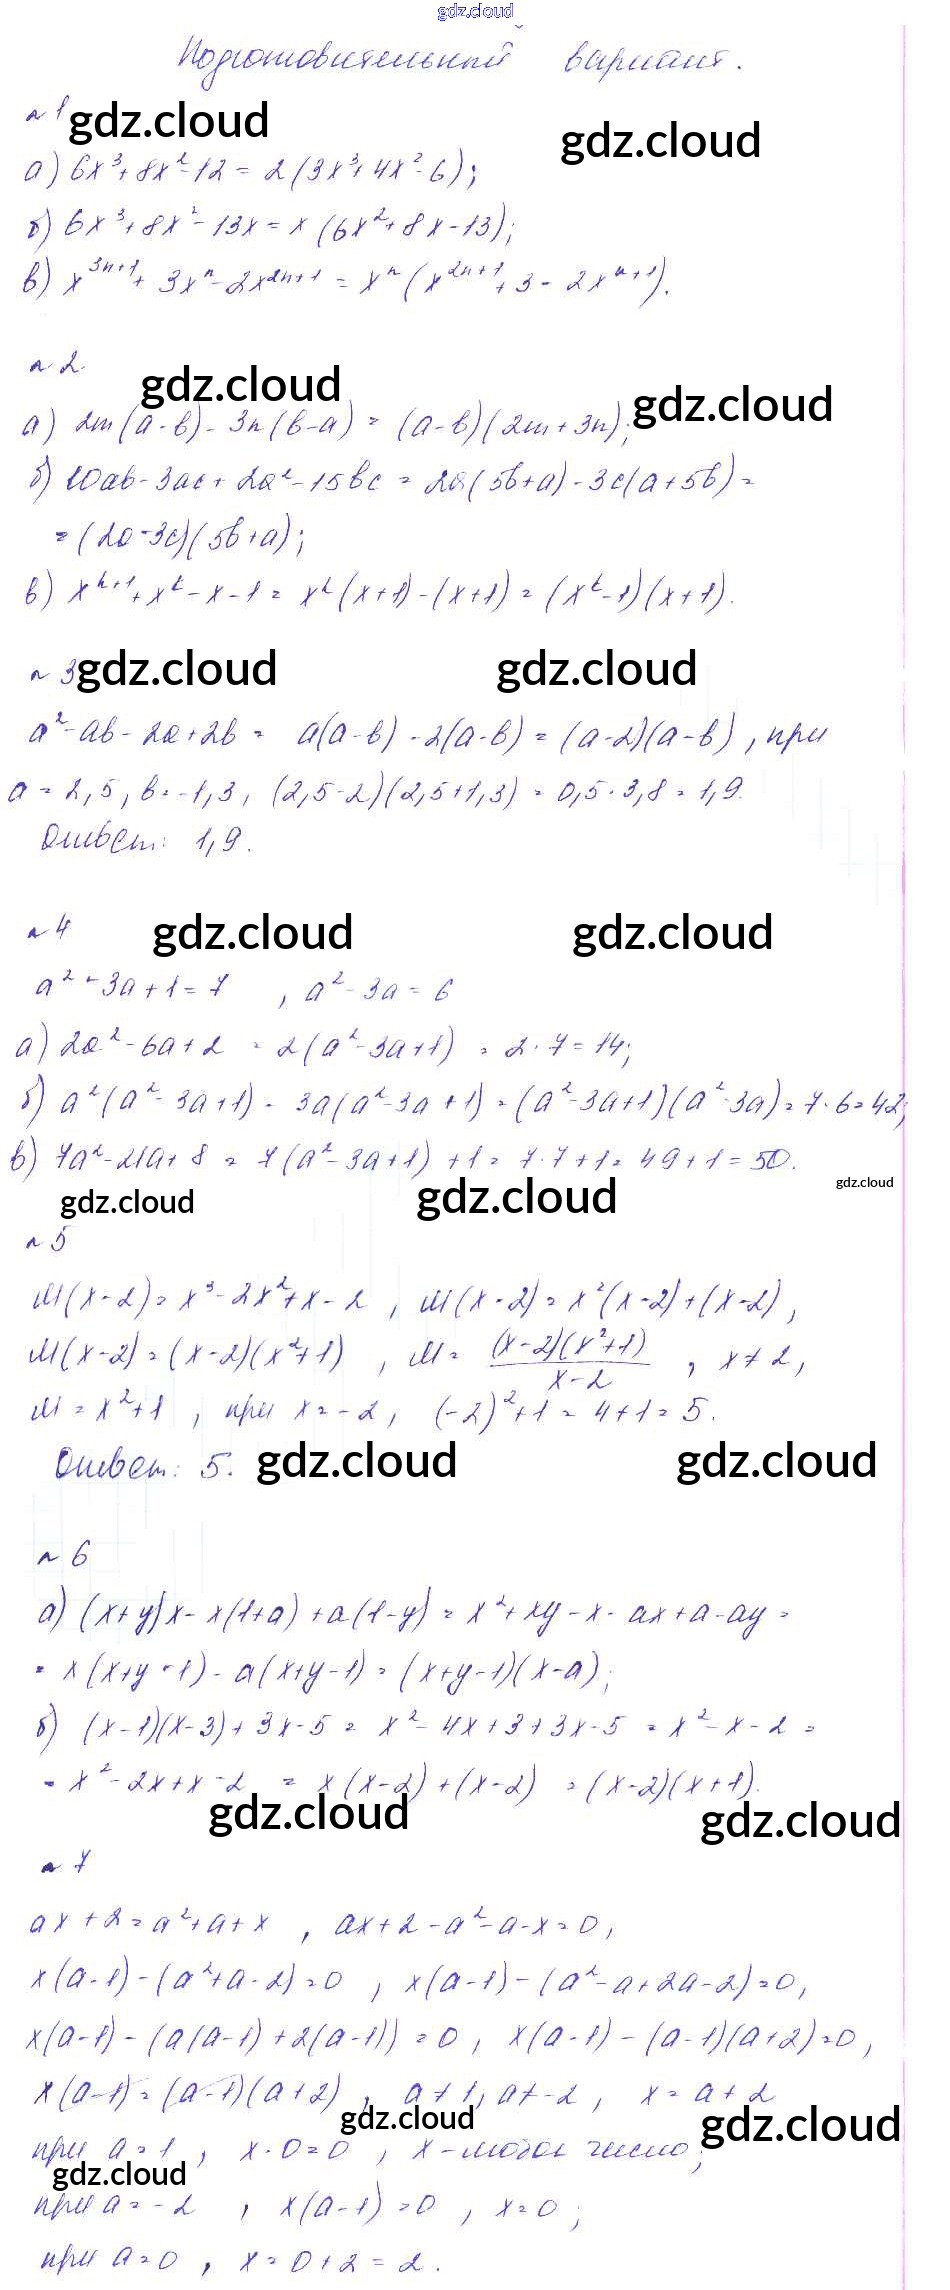 gdz.cloud
Подготовительный вариант.
№ 1 gdz.cloud gdz.cloud
а) 6x³+8x²-12 = 2(3x³+4x²-6);
б) 6x³+8x²-13x = x(6x²+8x-13);
в) x³ⁿ⁺¹+3xⁿ-2x²ⁿ⁺¹ = xⁿ(x²ⁿ⁺¹+3-2xⁿ⁺¹).
№ 2 gdz.cloud gdz.cloud
а) 2m(a-b)-3n(b-a) = (a-b)(2m+3n);
б) 10ab-3ac+2a²-15bc = 2a(5b+a)-3c(a+5b) =
= (2a-3c)(5b+a);
в) xᵏ⁺¹+xᵏ-x-1 = xᵏ(x+1)-(x+1) = (xᵏ-1)(x+1).
№ 3 gdz.cloud gdz.cloud
a²-ab-2a+2b = a(a-b)-2(a-b) = (a-2)(a-b), при
a = 2,5, b = -1,3, (2,5-2)(2,5+1,3) = 0,5·3,8 = 1,9.
Ответ: 1,9.
№ 4 gdz.cloud gdz.cloud
a²-3a+1 = 7, a²-3a = 6
а) 2a²-6a+2 = 2(a²-3a+1) = 2·7 = 14;
б) a²(a²-3a+1)-3a(a²-3a+1) = (a²-3a+1)(a²-3a) = 7·6 = 42;
в) 7a²-21a+8 = 7(a²-3a+1)+1 = 7·7+1 = 49+1 = 50.
gdz.cloud gdz.cloud gdz.cloud
№ 5
M(x-2) = x³-2x²+x-2, M(x-2) = x²(x-2)+(x-2),
M(x-2) = (x-2)(x²+1), M = (x-2)(x²+1)/(x-2), x≠2,
M = x²+1, при x = -2, (-2)²+1 = 4+1 = 5.
Ответ: 5. gdz.cloud gdz.cloud
№ 6
а) (x+y)x-x(1+a)+a(1-y) = x²+xy-x-ax+a-ay =
= x(x+y-1)-a(x+y-1) = (x+y-1)(x-a);
б) (x-1)(x-3)+3x-5 = x²-4x+3+3x-5 = x²-x-2 =
= x²-2x+x-2 = x(x-2)+(x-2) = (x-2)(x+1).
gdz.cloud gdz.cloud
№ 7
ax+2 = a²+a+x, ax+2-a²-a-x = 0,
x(a-1)-(a²+a-2) = 0, x(a-1)-(a²-a+2a-2) = 0,
x(a-1)-(a(a-1)+2(a-1)) = 0, x(a-1)-(a-1)(a+2) = 0,
x(a-1) = (a-1)(a+2), a≠1, a≠-2, x = a+2
gdz.cloud gdz.cloud
при a = 1, x·0 = 0, x - любое число;
gdz.cloud
при a = -2, x(a-1) = 0, x = 0;
при a = 0, x = 0+2 = 2.